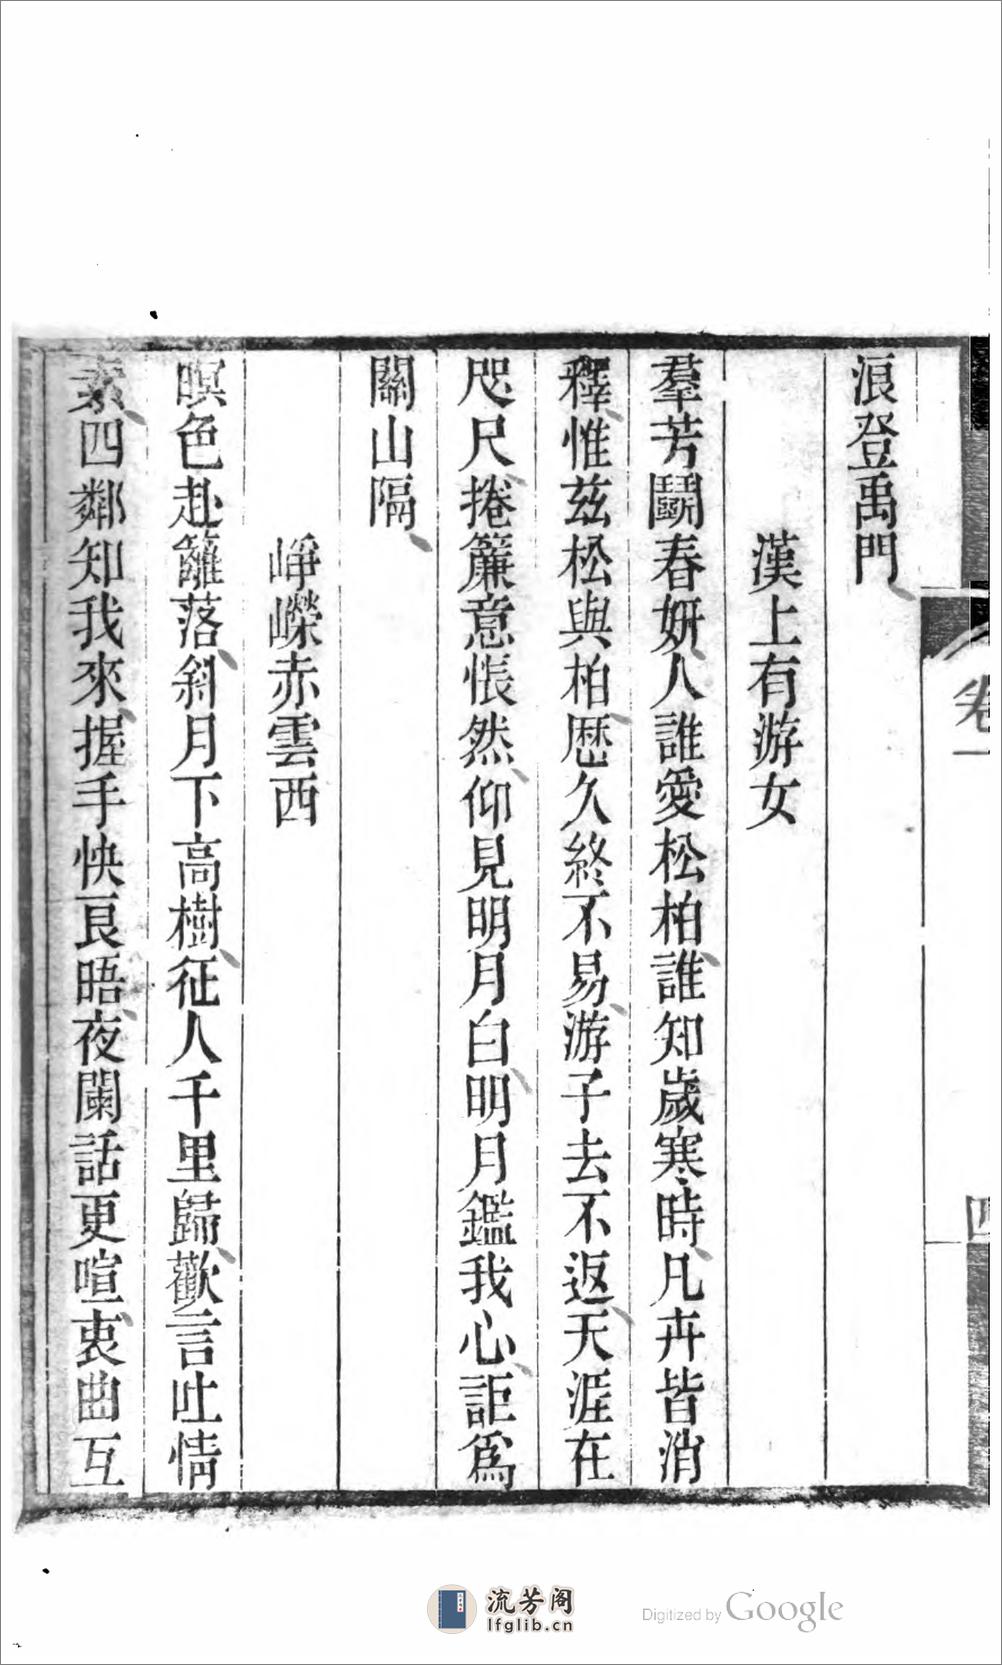 卷一
四
浪登禹門
漢上有游女
羣芳鬭春妍人誰愛松柏誰知歲寒時凡卉皆消
釋惟茲松與柏歷久終不易游子去不返天涯在
咫尺捲簾意悵然仰見明月白明月鑑我心詎爲
關山隔
崢嶸赤雲西
暝色赴籬落斜月下高樹征人千里歸歡言吐情
素四鄰知我來握手快良晤夜闌話更喧衷曲互
流芳阁
lfglib.cn
Digitized by Google